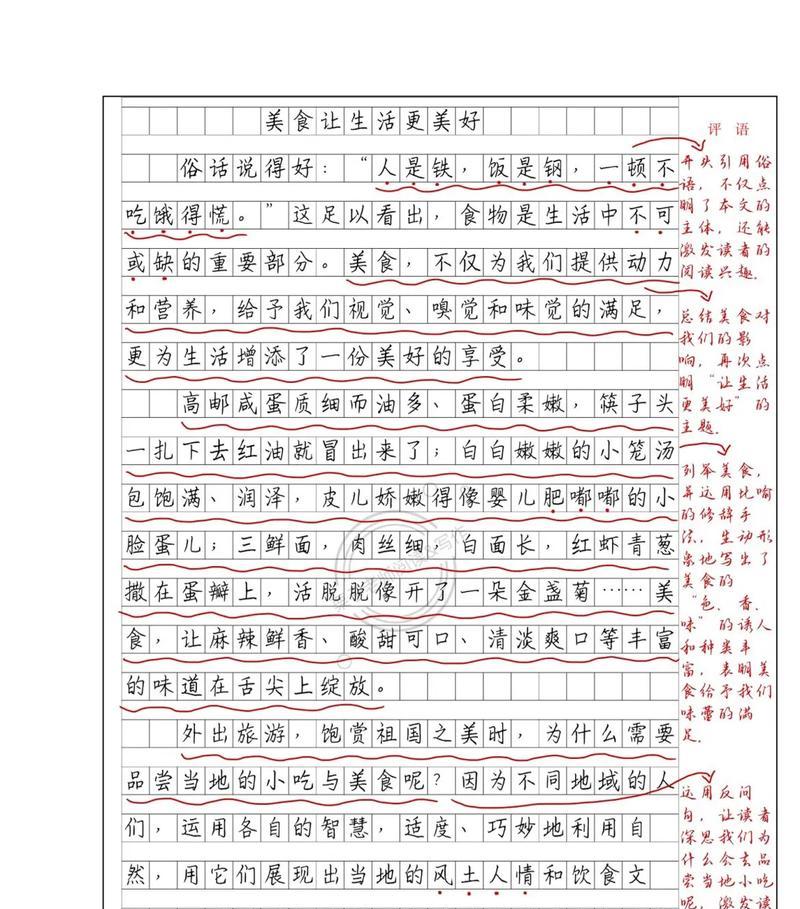 美食让生活更美好
俗话说得好：“人是铁，饭是钢，一顿不
吃饿得慌。”这足以看出，食物是生活中不可
或缺的重要部分。美食，不仅为我们提供动力
和营养，给予我们视觉、嗅觉和味觉的满足，
更为生活增添了一份美好的享受。
高邮咸蛋质细而油多、蛋白柔嫩，筷子头
一扎下去红油就冒出来了；白白嫩嫩的小笼汤
包饱满、润泽，皮儿娇嫩得像婴儿肥嘟嘟的小
脸蛋儿；三鲜面，肉丝细，白面长，红虾青葱
撒在蛋瓣上，活脱脱像开了一朵金盏菊……美
食，让麻辣鲜香、酸甜可口、清淡爽口等丰富
的味道在舌尖上绽放。
外出旅游，饱赏祖国之美时，为什么需要
品尝当地的小吃与美食呢？因为不同地域的人
们，运用各自的智慧，适度、巧妙地利用自
然，用它们展现出当地的风土人情和饮食文
评语
开头引用俗
语，不仅点
明了本文的
主体，还能
激发读者的
阅读兴趣。
总结美食对
我们的影
响，再次点
明“让生活
更美好”的
主题。
列举美食，
并运用比喻
的修辞手
法，生动形
象地写出了
美食的
“色、香、
味”的诱人
和种类丰
富，表明美
食给予我们
味蕾的满
足。
运用反问
句，让读者
深思我们为
什么会去品
尝当地小吃
呢，激发读